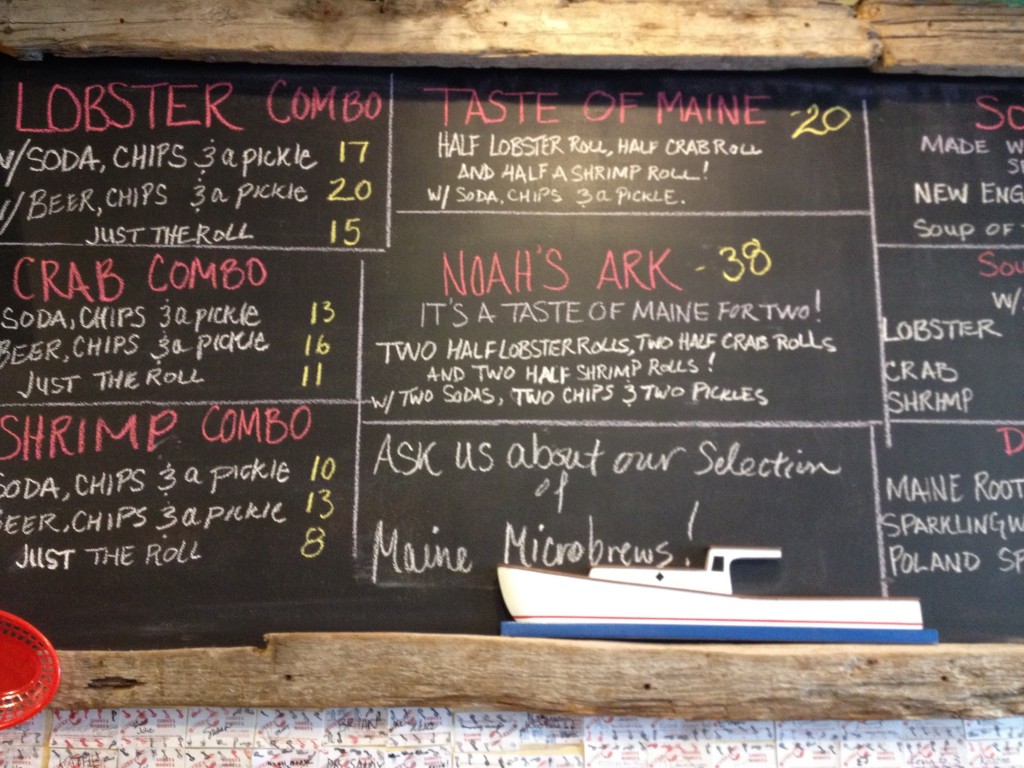 LOBSTER COMBO
W/SODA, CHIPS & a pickle 17
W/BEER, CHIPS & a pickle 20
JUST THE ROLL 15
CRAB COMBO
SODA, CHIPS & a pickle 13
BEER, CHIPS & a pickle 16
JUST THE ROLL 11
SHRIMP COMBO
SODA, CHIPS & a pickle 10
BEER, CHIPS & a pickle 13
JUST THE ROLL 8
TASTE OF MAINE -20
HALF LOBSTER ROLL, HALF CRAB ROLL
AND HALF A SHRIMP ROLL!
W/ SODA, CHIPS & a PICKLE.
NOAH'S ARK - 38
IT'S A TASTE OF MAINE FOR TWO!
TWO HALF LOBSTER ROLLS, TWO HALF CRAB ROLLS
AND TWO HALF SHRIMP ROLLS!
W/ TWO SODAS, TWO CHIPS & TWO PICKLES
ASK US about our Selection
of
Maine Microbrews!
SO
MADE W
NEW ENG
SOUP OF
SOU
W/
LOBSTER
CRAB
SHRIMP
D
MAINE ROOT
SPARKLING W
POLAND SP